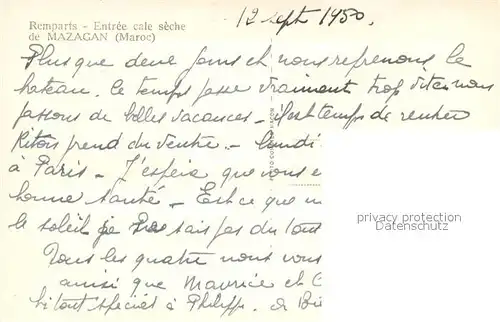 Remparts - Entrée cale sèche
de MAZAGAN (Maroc)
12 sept 1950.
Plus que deux jours et nous reprenons le
bateau. le temps passe vraiment trop vite nous
passons de belles vacances - il est temps de rentrer
prend du ventre - lundi
à Paris - J'espère que vous
bonne santé - Est ce que
le soleil je ne sais pas du tout
Tous les quatre nous vous
ainsi que Maurice et
spécial à Philippe. de
privacy protection
Datenschutz